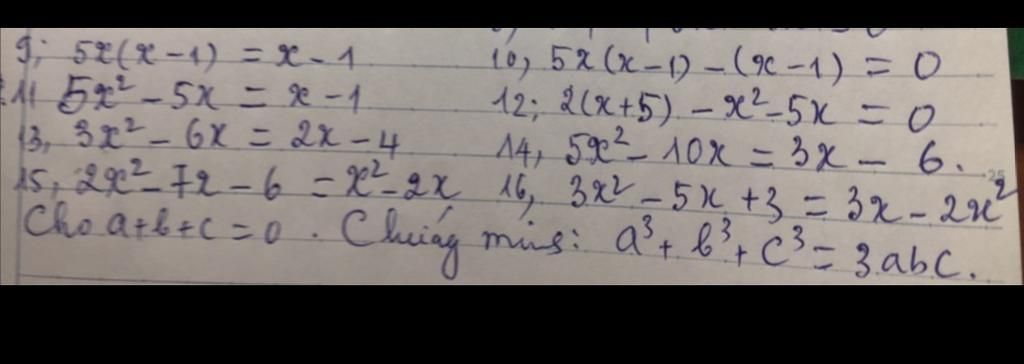 9; 5x(x-1) = x-1 10, 5x(x-1)-(x-1) = 0
11 5x² - 5x = x-1 12; 2(x+5) - x²-5x = 0
13, 3x² - 6x = 2x-4 14, 5x²-10x = 3x - 6.
15, 2x²-7x-6 = x²-2x 16, 3x²-5x+3 = 3x-2x²
Cho a+b+c=0. Chứng minh: a³+b³+c³=3abc.